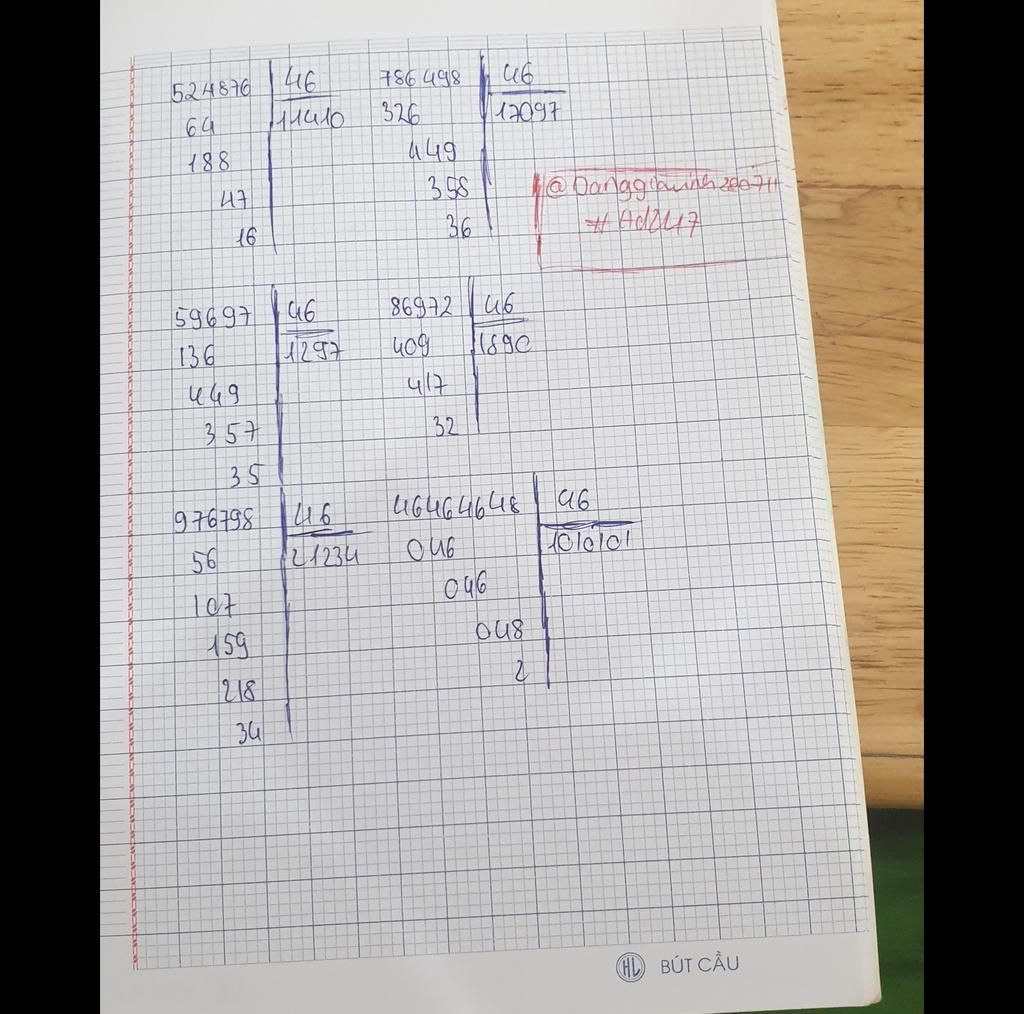 524876 46 786498 46
64 11410 326 17097
188 449
47 358
16 36
#Ad247
59697 46 86972 46
136 1297 409 1890
449 417
357 32
35
976798 46 46464648 46
56 21234 046 1010101
107 046
159 048
218 2
34
HL BÚT CẦU